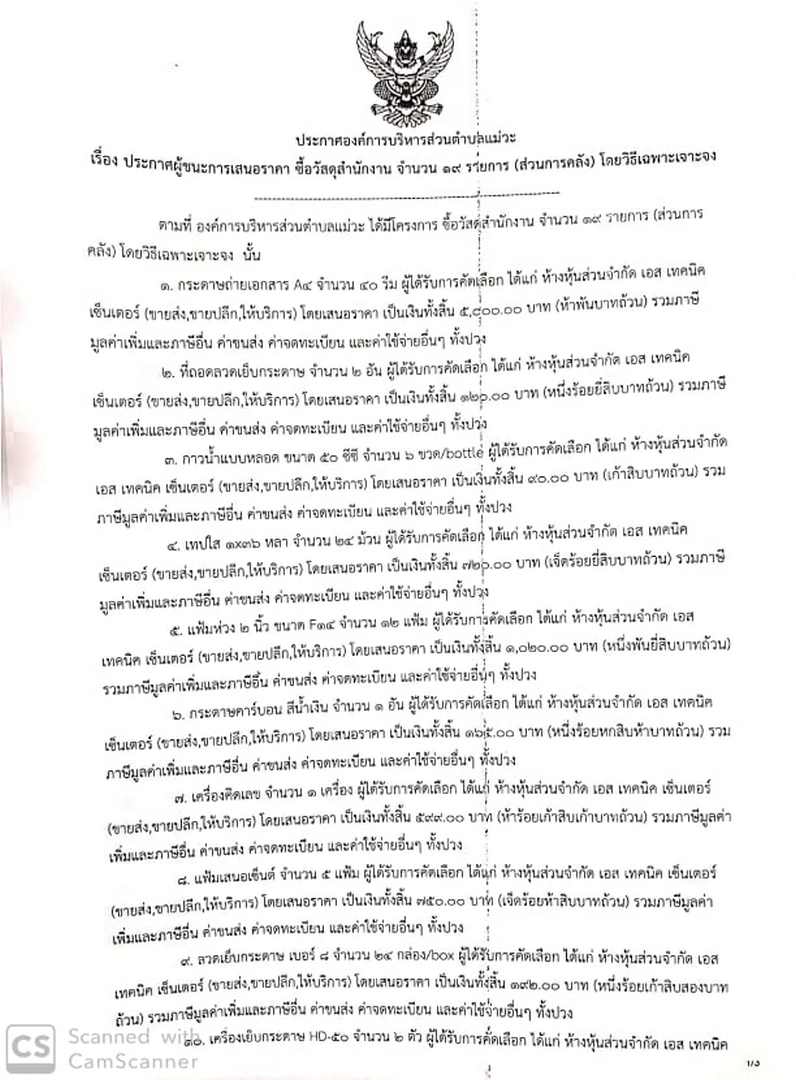 ประกาศองค์การบริหารส่วนตำบลแม่วะ
เรื่อง ประกาศผู้ชนะการเสนอราคา ซื้อวัสดุสำนักงาน จำนวน ๑๙ รายการ (ส่วนการคลัง) โดยวิธีเฉพาะเจาะจง
ตามที่ องค์การบริหารส่วนตำบลแม่วะ ได้มีโครงการ ซื้อวัสดุสำนักงาน จำนวน ๑๙ รายการ (ส่วนการ
คลัง) โดยวิธีเฉพาะเจาะจง นั้น
๑. กระดาษถ่ายเอกสาร A๔ จำนวน ๔๐ รีม ผู้ได้รับการคัดเลือก ได้แก่ ห้างหุ้นส่วนจำกัด เอส เทคนิค
เซ็นเตอร์ (ขายส่ง,ขายปลีก,ให้บริการ) โดยเสนอราคา เป็นเงินทั้งสิ้น ๕,๐๐๐.๐๐ บาท (ห้าพันบาทถ้วน) รวมภาษี
มูลค่าเพิ่มและภาษีอื่น ค่าขนส่ง ค่าจดทะเบียน และค่าใช้จ่ายอื่นๆ ทั้งปวง
๒. ที่ถอดลวดเย็บกระดาษ จำนวน ๒ อัน ผู้ได้รับการคัดเลือก ได้แก่ ห้างหุ้นส่วนจำกัด เอส เทคนิค
เซ็นเตอร์ (ขายส่ง,ขายปลีก,ให้บริการ) โดยเสนอราคา เป็นเงินทั้งสิ้น ๑๒๐.๐๐ บาท (หนึ่งร้อยยี่สิบบาทถ้วน) รวมภาษี
มูลค่าเพิ่มและภาษีอื่น ค่าขนส่ง ค่าจดทะเบียน และค่าใช้จ่ายอื่นๆ ทั้งปวง
๓. กาวน้ำแบบหลอด ขนาด ๕๐ ซีซี จำนวน ๖ ขวด/bottle ผู้ได้รับการคัดเลือก ได้แก่ ห้างหุ้นส่วนจำกัด
เอส เทคนิค เซ็นเตอร์ (ขายส่ง,ขายปลีก,ให้บริการ) โดยเสนอราคา เป็นเงินทั้งสิ้น ๙๐.๐๐ บาท (เก้าสิบบาทถ้วน) รวม
ภาษีมูลค่าเพิ่มและภาษีอื่น ค่าขนส่ง ค่าจดทะเบียน และค่าใช้จ่ายอื่นๆ ทั้งปวง
๔. เทปใส ๑x๓๖ หลา จำนวน ๒๔ ม้วน ผู้ได้รับการคัดเลือก ได้แก่ ห้างหุ้นส่วนจำกัด เอส เทคนิค
เซ็นเตอร์ (ขายส่ง,ขายปลีก,ให้บริการ) โดยเสนอราคา เป็นเงินทั้งสิ้น ๗๒๐.๐๐ บาท (เจ็ดร้อยยี่สิบบาทถ้วน) รวมภาษี
มูลค่าเพิ่มและภาษีอื่น ค่าขนส่ง ค่าจดทะเบียน และค่าใช้จ่ายอื่นๆ ทั้งปวง
๕. แฟ้มห่วง ๒ นิ้ว ขนาด F๑๔ จำนวน ๑๒ แฟ้ม ผู้ได้รับการคัดเลือก ได้แก่ ห้างหุ้นส่วนจำกัด เอส
เทคนิค เซ็นเตอร์ (ขายส่ง,ขายปลีก,ให้บริการ) โดยเสนอราคา เป็นเงินทั้งสิ้น ๑,๐๒๐.๐๐ บาท (หนึ่งพันยี่สิบบาทถ้วน)
รวมภาษีมูลค่าเพิ่มและภาษีอื่น ค่าขนส่ง ค่าจดทะเบียน และค่าใช้จ่ายอื่นๆ ทั้งปวง
๖. กระดาษคาร์บอน สีน้ำเงิน จำนวน ๑ อัน ผู้ได้รับการคัดเลือก ได้แก่ ห้างหุ้นส่วนจำกัด เอส เทคนิค
เซ็นเตอร์ (ขายส่ง,ขายปลีก,ให้บริการ) โดยเสนอราคา เป็นเงินทั้งสิ้น ๑๖๕.๐๐ บาท (หนึ่งร้อยหกสิบห้าบาทถ้วน) รวม
ภาษีมูลค่าเพิ่มและภาษีอื่น ค่าขนส่ง ค่าจดทะเบียน และค่าใช้จ่ายอื่นๆ ทั้งปวง
๗. เครื่องคิดเลข จำนวน ๑ เครื่อง ผู้ได้รับการคัดเลือก ได้แก่ ห้างหุ้นส่วนจำกัด เอส เทคนิค เซ็นเตอร์
(ขายส่ง,ขายปลีก,ให้บริการ) โดยเสนอราคา เป็นเงินทั้งสิ้น ๕๙๙.๐๐ บาท (ห้าร้อยเก้าสิบเก้าบาทถ้วน) รวมภาษีมูลค่า
เพิ่มและภาษีอื่น ค่าขนส่ง ค่าจดทะเบียน และค่าใช้จ่ายอื่นๆ ทั้งปวง
๘. แฟ้มเสนอเซ็นต์ จำนวน ๕ แฟ้ม ผู้ได้รับการคัดเลือก ได้แก่ ห้างหุ้นส่วนจำกัด เอส เทคนิค เซ็นเตอร์
(ขายส่ง,ขายปลีก,ให้บริการ) โดยเสนอราคา เป็นเงินทั้งสิ้น ๗๕๐.๐๐ บาท (เจ็ดร้อยห้าสิบบาทถ้วน) รวมภาษีมูลค่า
เพิ่มและภาษีอื่น ค่าขนส่ง ค่าจดทะเบียน และค่าใช้จ่ายอื่นๆ ทั้งปวง
๙. ลวดเย็บกระดาษ เบอร์ ๘ จำนวน ๒๔ กล่อง/box ผู้ได้รับการคัดเลือก ได้แก่ ห้างหุ้นส่วนจำกัด เอส
เทคนิค เซ็นเตอร์ (ขายส่ง,ขายปลีก,ให้บริการ) โดยเสนอราคา เป็นเงินทั้งสิ้น ๑๙๒.๐๐ บาท (หนึ่งร้อยเก้าสิบสองบาท
ถ้วน) รวมภาษีมูลค่าเพิ่มและภาษีอื่น ค่าขนส่ง ค่าจดทะเบียน และค่าใช้จ่ายอื่นๆ ทั้งปวง
๑๐. เครื่องเย็บกระดาษ HD-๕๐ จำนวน ๒ ตัว ผู้ได้รับการคัดเลือก ได้แก่ ห้างหุ้นส่วนจำกัด เอส เทคนิค
CS Scanned with
CamScanner